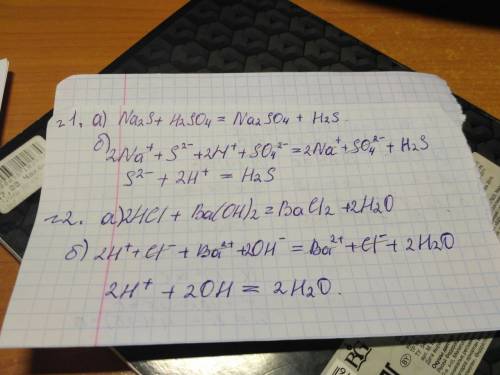 г1. а) Na₂S + H₂SO₄ = Na₂SO₄ + H₂S.
б) 2Na⁺ + S²⁻ + 2H⁺ + SO₄²⁻ = 2Na⁺ + SO₄²⁻ + H₂S
S²⁻ + 2H⁺ = H₂S
г2. а) 2HCl + Ba(OH)₂ = BaCl₂ + 2H₂O
б) 2H⁺ + Cl⁻ + Ba²⁺ + 2OH⁻ = Ba²⁺ + Cl⁻ + 2H₂O
2H⁺ + 2OH = 2H₂O.